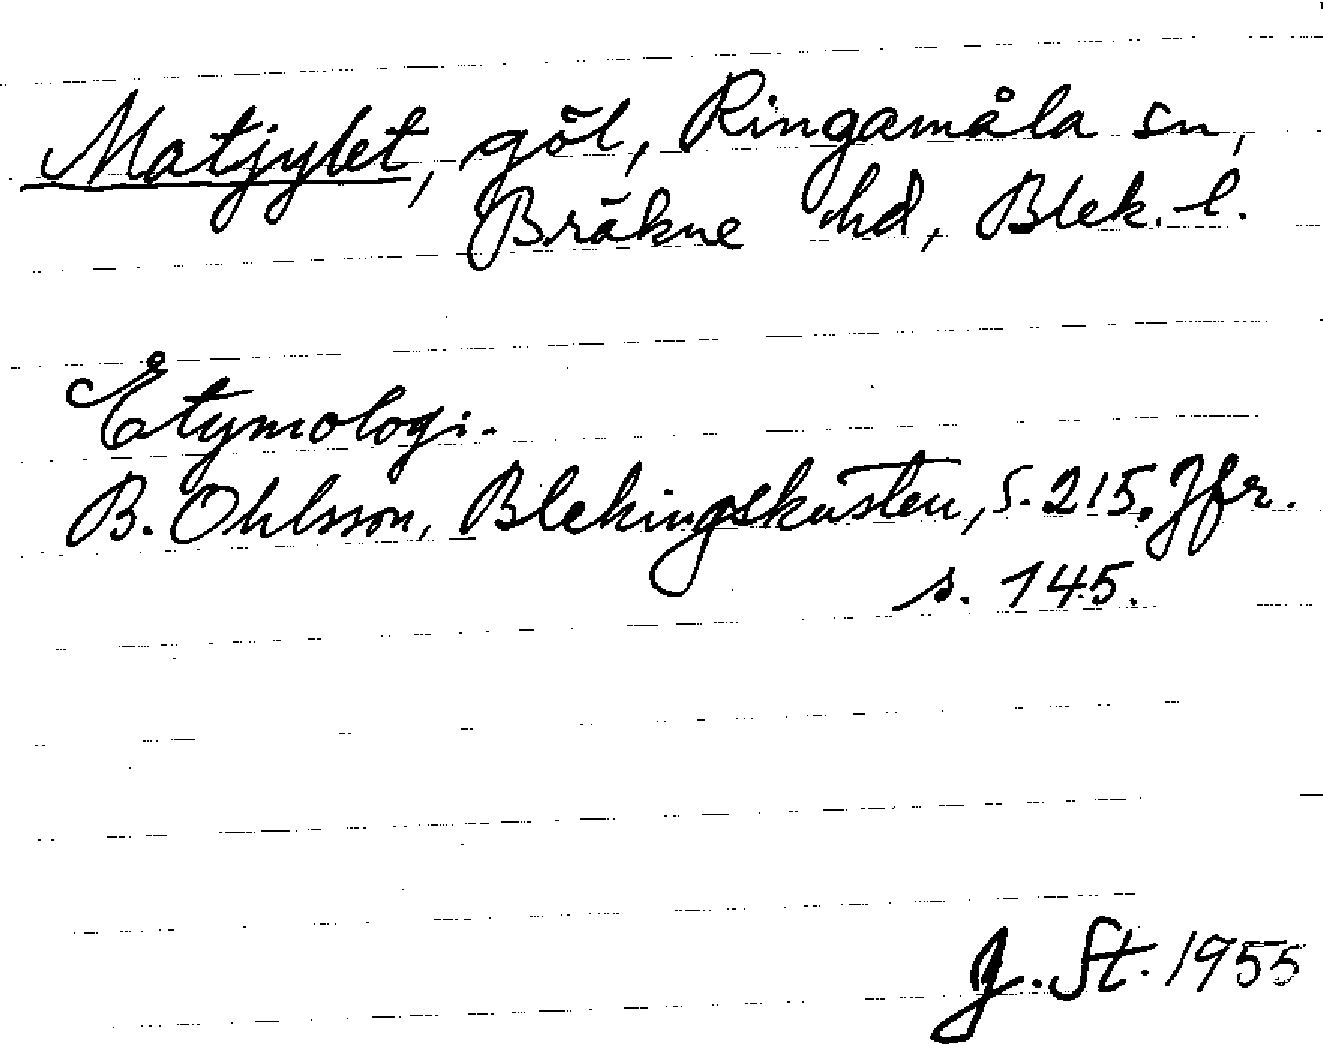 Matjylet, göl, Ringamåla sn,
Bräkne hd, Blek. l.
Etymologi.
B. Ohlsson, Blekingskusten, s. 215. Jfr.
s. 145.
J. St. 1955